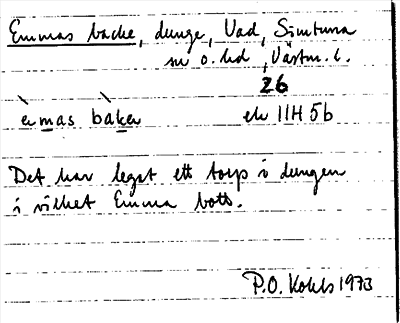 Emmas backe, dunge, Vad, Simtuna
sn o. hd, Västm. l.
26
èmas bàken
ek 11H 5b
Det har legat ett torp i dungen
i vilket Emma bott.
P.O. Kohls 1973